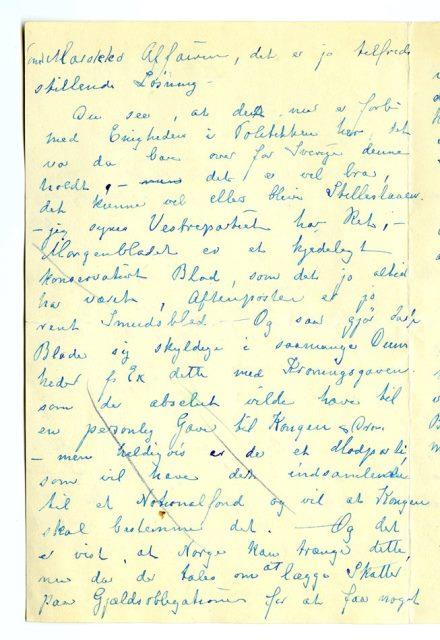 om Marokko Affairen, det er jo tilfreds
stillende Løsning –
Du seer, at det nu er forbi
med Enigheden i Politikken her, det
var da bare over for Sverige denne
holdt, – men det er vel bra,
det kunne vel ellers blive Stillestaaen.
– jeg synes Vestrepartiet har Ret, –
Morgenbladet er et kjedeligt
konservativt Blad, som det jo altid
har været, Aftenposten er jo
rent Smudsblad. – Og saa gjør
Blade sig skyldige i saamange Dum
heder f. Ex dette med Kroningsgaven.
som de absolut vilde have til
en personlig Gave til Kongen & Dron.
– men heldigvis er de et Modparti
som vil have det indsamlende
til et Nationalfond og vil at Kongen
skal bestemme det. – Og det
er vist, at Norge kan trænge dette,
nu da der tales om at lægge Skatter
paa Gjældsobligationer for at faa noget